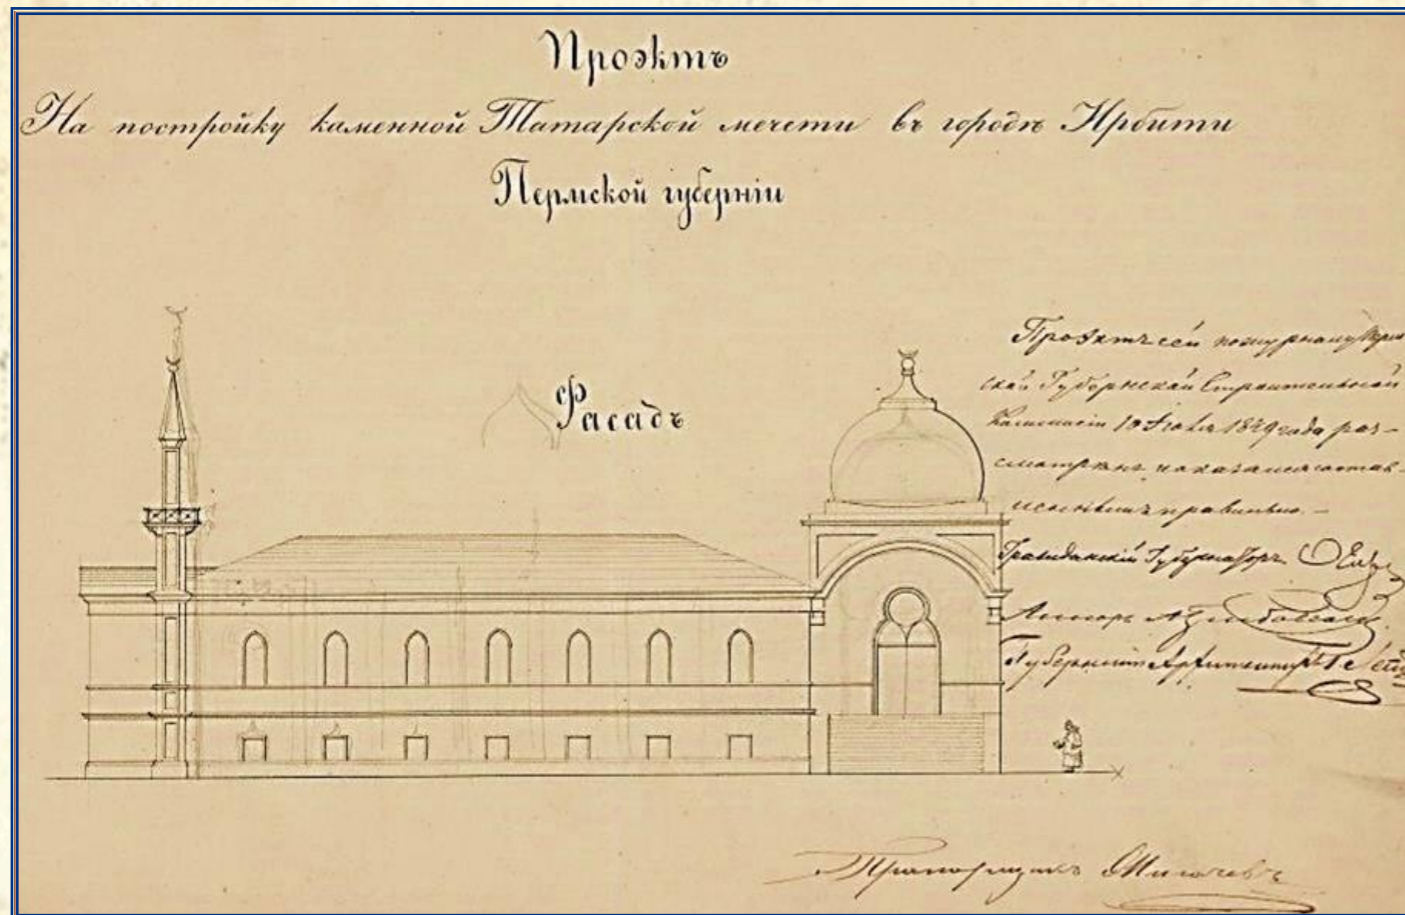 Проэктъ
На постройку каменной Татарской мечети въ городѣ Ирбити
Пермской губерніи
Фасадъ
Проэктъ сей по журналу Перм-
ской Губернской Строительной
Коммисіи 10 Іюля 1849 года раз-
смотренъ и оказался состав-
леннымъ правильно. —
Гражданскій Губернаторъ
Губернскій Архитекторъ
Прапорщикъ